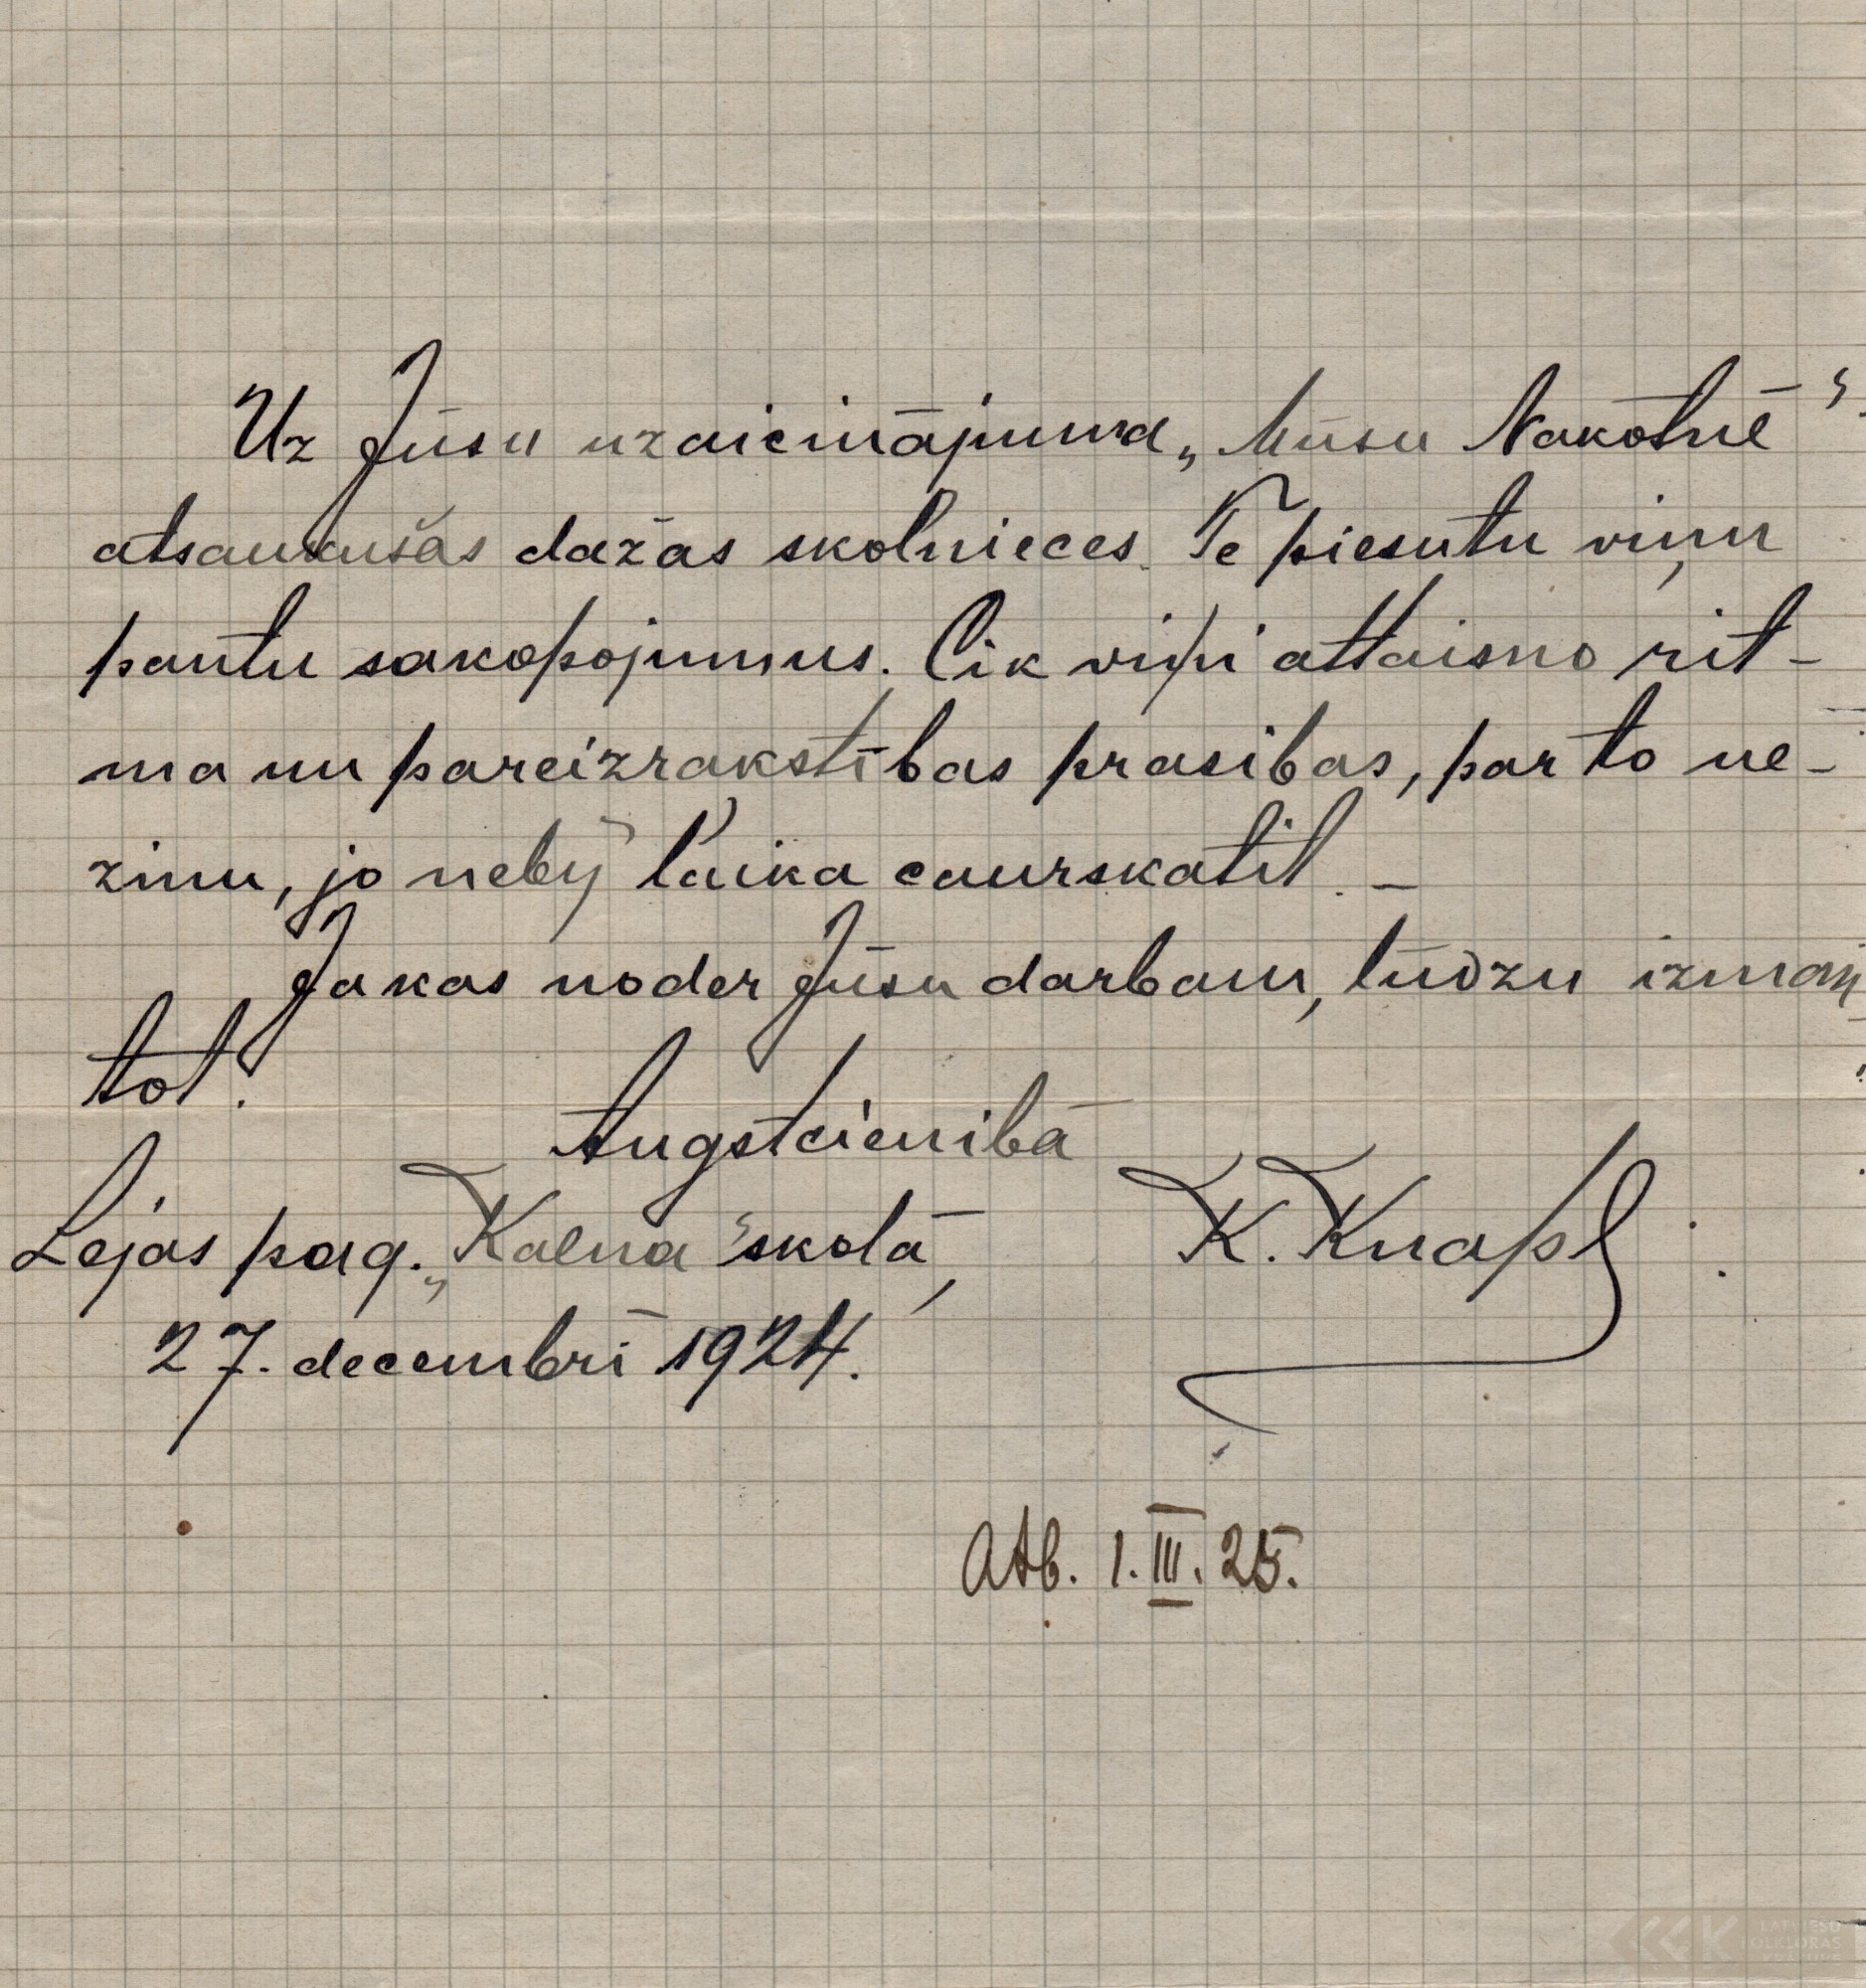 Uz Jūsu uzaicinājumu „Mūsu Nakotnē“
atsaukušās dažas skolnieces. Te piesutu viņu
pantu sakopojumus. Cik viņi attaisno rit-
ma un pareizrakstības prasibas, par to ne-
zinu, jo nebij laika caurskatit. –
Ja kas noder Jūsu darbam, lūdzu izman
tot!
Augstcienibā
Lejas pag. „Kalna“ skolā, K. Knapš
27. decembrī 1924.
Atb. 1. III. 25.
LATVIEŠU
FOLKLORAS